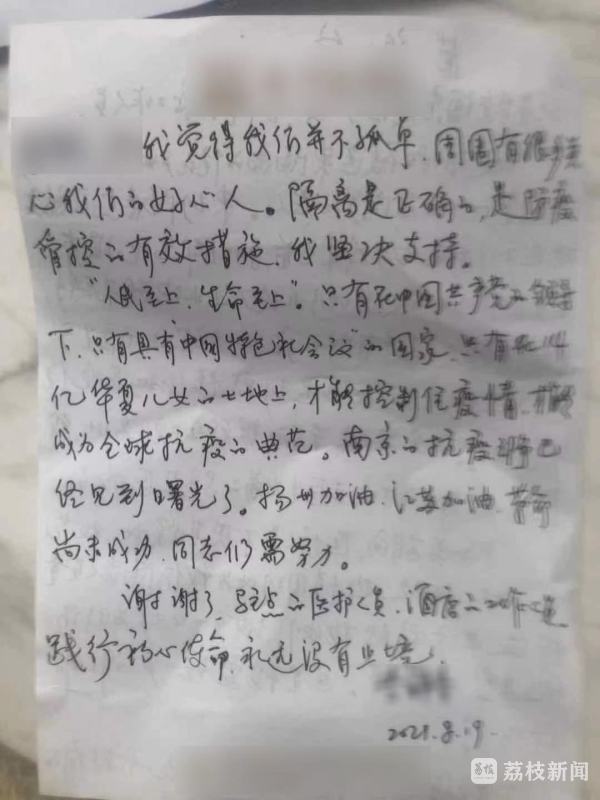 我觉得我们并不孤单，周围有很多关
心我们的好心人。隔离是正确的，是防疫
管控的有效措施，我坚决支持。
"人民至上，生命至上"。只有在中国共产党的领导
下，只有具有"中国特色社会主义"的国家，只有在14
亿华夏儿女的土地上，才能控制住疫情，才能
成为全球抗疫的典范。南京的抗疫
经见到曙光了。扬州加油，江苏加油，革命
尚未成功，同志们需努力。
谢谢了，的医护人员，酒店的工作人员
践行初心使命，永远没有止境，
2021.8.19.
荔枝新闻